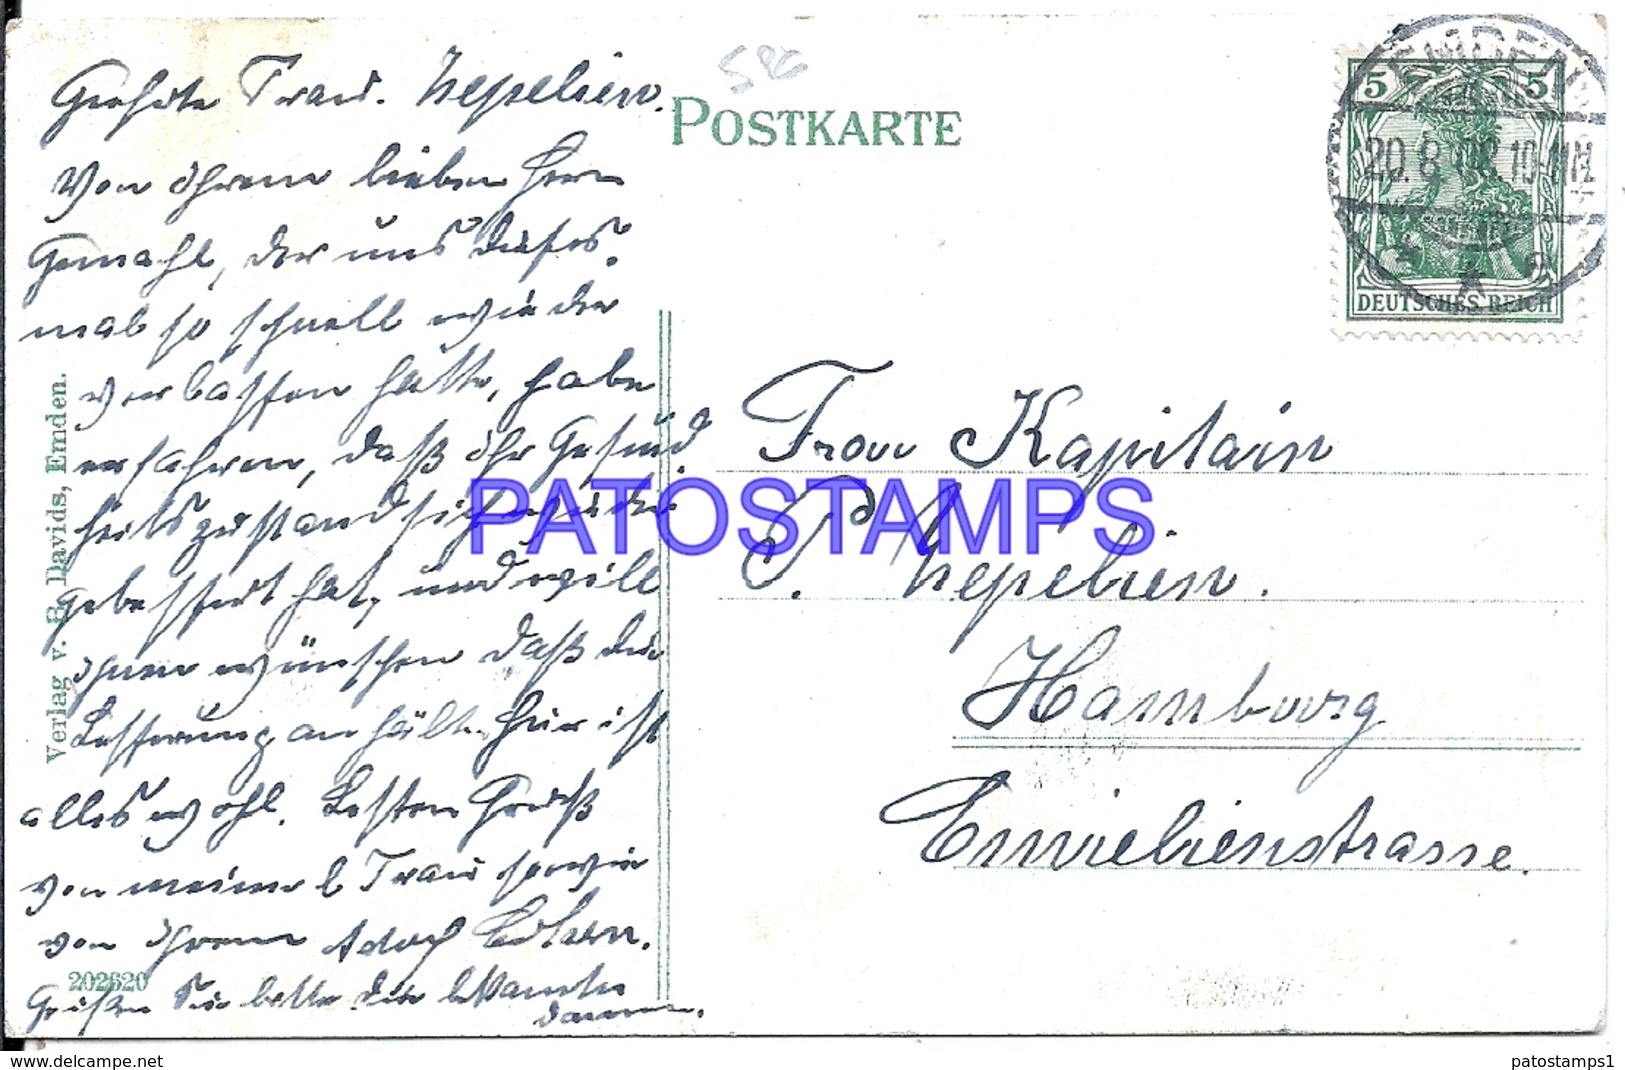 Geehrte Frau. Nepelien.
Von Ihrem lieben Herrn
Gemahl, der uns dieses
mal so schnell wieder
verlassen hatte, habe
erfahren, daß Ihr Gesund
heitszustand sich wieder
gebessert hat, und will
Ihnen wünschen daß die
Besserung anhält. Hier ist
alles wohl. Besten Gruß
von meiner l Frau sowie
von Ihrem Adolf
Grüßen Sie bitte die bekannte
Damen.
Verlag v. B. Davids, Emden.
202620
POSTKARTE
5 5
EMDEN
20.8.08.10-11N
DEUTSCHES REICH
Frau Kapitain
P. Nepelien.
Hamburg
Emielienstrasse.
PATOSTAMPS
https://www.delcampe.net
patostamps1